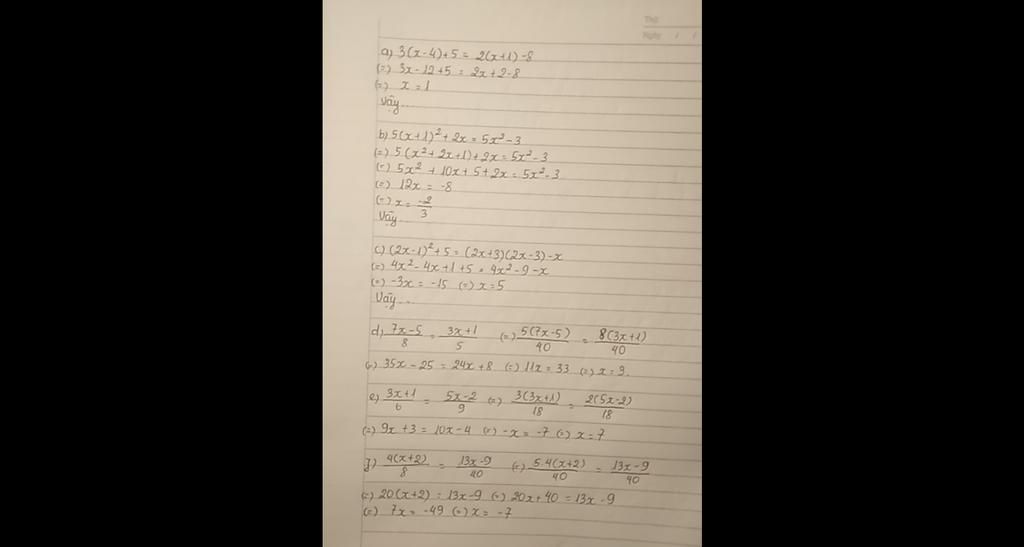 Thứ
Ngày / /
a) 3(x-4)+5 = 2(x+1)-8
(=) 3x-12+5 = 2x+2-8
(=) x = 1
Vậy...
b) 5(x+1)² + 2x = 5x² - 3
(=) 5(x² + 2x + 1) + 2x = 5x² - 3
(=) 5x² + 10x + 5 + 2x = 5x² - 3
(=) 12x = -8
(=) x = -2/3
Vậy...
c) (2x-1)² + 5 = (2x+3)(2x-3) - x
(=) 4x² - 4x + 1 + 5 = 4x² - 9 - x
(=) -3x = -15 (=) x = 5
Vậy...
d) (7x-5)/8 = (3x+1)/5 (=) 5(7x-5)/40 = 8(3x+1)/40
(=) 35x - 25 = 24x + 8 (=) 11x = 33 (=) x = 3.
e) (3x+1)/6 = (5x-2)/9 (=) 3(3x+1)/18 = 2(5x-2)/18
(=) 9x + 3 = 10x - 4 (=) -x = -7 (=) x = 7
f) 4(x+2)/8 = (13x-9)/40 (=) 5.4(x+2)/40 = (13x-9)/40
(=) 20(x+2) = 13x-9 (=) 20x + 40 = 13x - 9
(=) 7x = -49 (=) x = -7